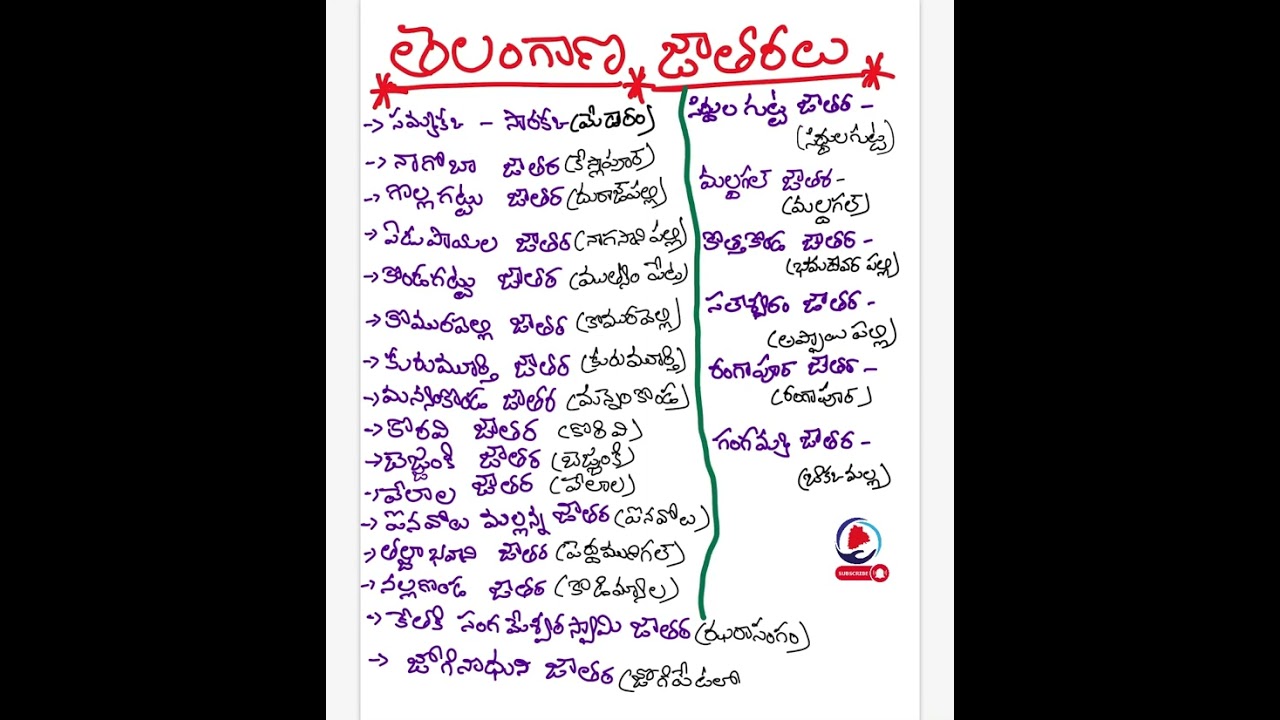 తెలంగాణ జాతరలు
-> సమ్మక్క - సారక్క (మేడారం)
-> నాగోబా జాతర (కేస్లాపూర)
-> గొల్లగట్టు జాతర (దురాజ్‌పల్లి)
-> ఏడుపాయల జాతర (నాగసాని పల్లి)
-> కొండగట్టు జాతర (ముత్యం పేట)
-> కొమురవెల్లి జాతర (కొమురవెల్లి)
-> కురుమూర్తి జాతర (కురుమూర్తి)
-> మన్నెంకొండ జాతర (మన్నెం కొండ)
-> కొరవి జాతర (కొరివి)
-> బెజ్జంకి జాతర (బెజ్జంకి)
-> వేలాల జాతర (వేలాల)
-> ఐనవోలు మల్లన్న జాతర (ఐనవోలు)
-> తల్జా భవాని జాతర (పెద్దముదిగల్)
-> నల్లకొండ జాతర (కొడిమ్యాల)
-> కేతకి సంగమేశ్వర స్వామి జాతర (ఝరాసంగం)
-> జోగినాథుని జాతర (జోగిపేటలో
సిద్దుల గుట్ట జాతర -
(సిద్దులగుట్ట)
మల్దగల్ జాతర -
(మల్దగల్)
కొత్తకొండ జాతర -
(భీమదేవర పల్లి)
సలేశ్వరం జాతర -
(అప్పాయి పల్లి)
రంగాపూర జాతర -
(రంగాపూర)
గంగమ్మ జాతర -
SUBSCRIBE